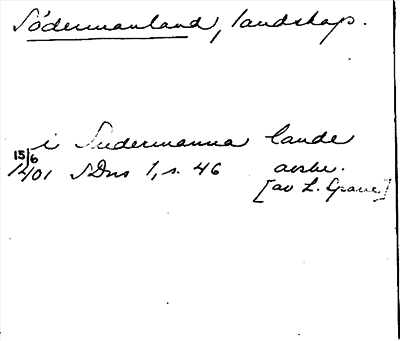 Södermanland, landskap.
i Sudermanna lande
15/6 1401 SDns 1, s. 46 avskr.
[av L. Grane]